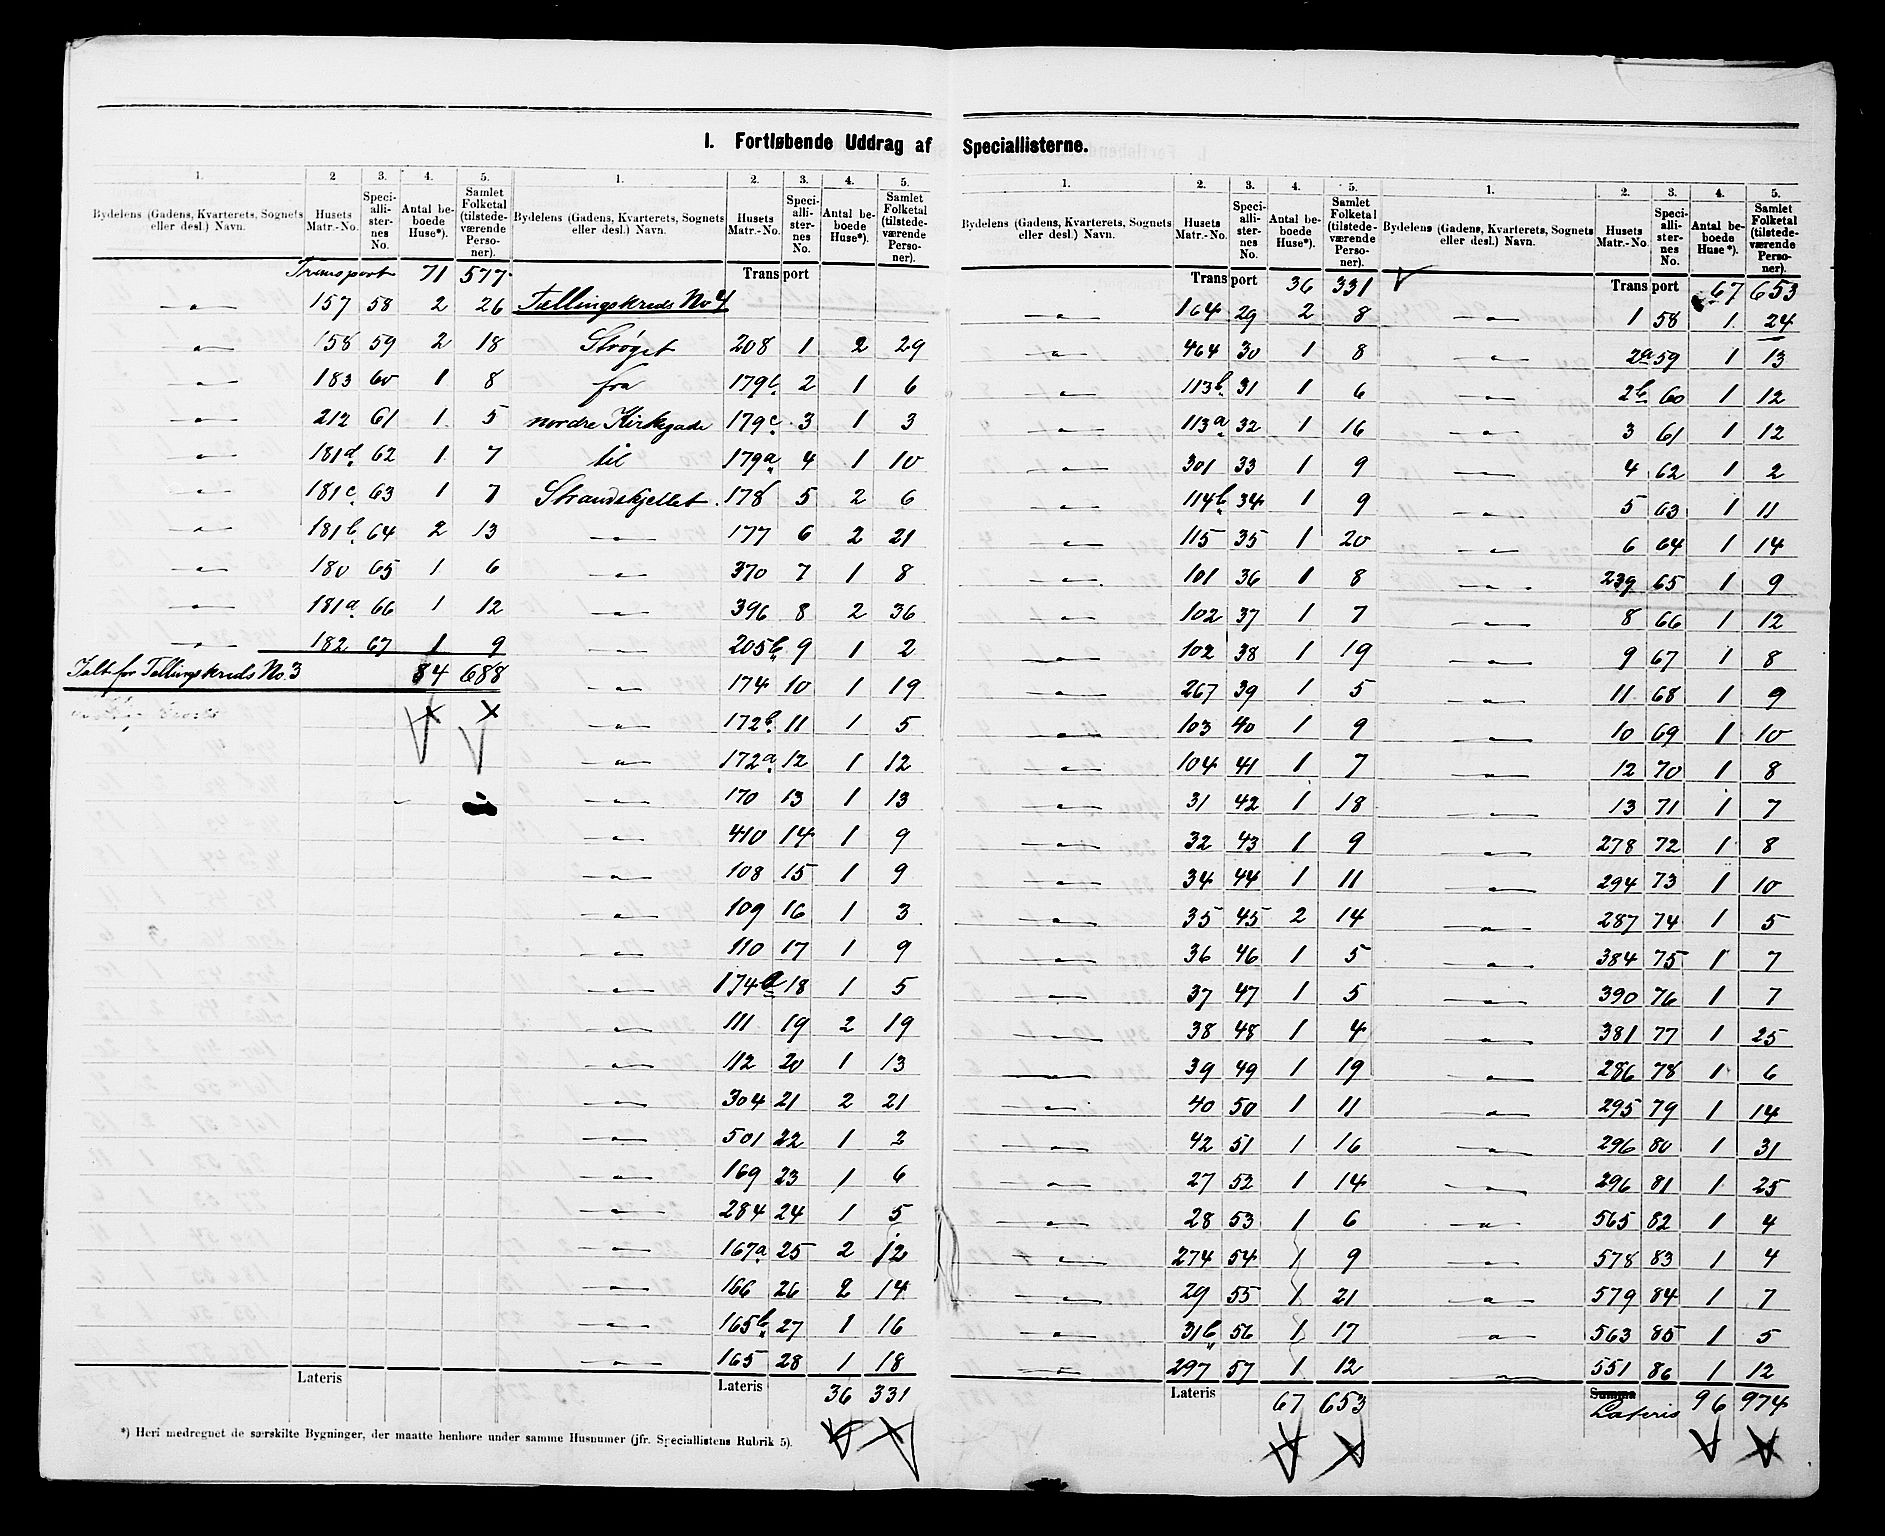 I. Fortløbende Uddrag af Speciallisterne.
1. 2 3. 4. 5.
Bydelens (Gadens, Kvarterets, Sognets eller desl.) Navn. Husets Matr.-No. Speciallisternes No. Antal beboede Huse*). Samlet Folketal (tilstedeværende Personer).
Transport 71 577
—"— 157 58 2 26
—"— 158 59 2 18
—"— 183 60 1 8
—"— 212 61 1 5
—"— 181d 62 1 7
—"— 181c 63 1 7
—"— 181b 64 2 13
—"— 180 65 1 6
—"— 181a 66 1 12
—"— 182 67 1 9
Ialt for Tællingskreds No. 3 84 688
Lateris
1. 2. 3. 4. 5.
Bydelens (Gadens, Kvarterets, Sognets eller desl.) Navn. Husets Matr.-No. Speciallisternes No. Antal beboede Huse*). Samlet Folketal (tilstedeværende Personer).
Transport
Tællingskreds No 4
Strøget 208 1 2 29
fra 179b 2 1 6
nordre Kirkegade 179c 3 1 3
til 179a 4 1 10
Strandskjellet. 178 5 2 6
—"— 177 6 2 21
—"— 370 7 1 8
—"— 396 8 2 36
—"— 205b 9 1 2
—"— 174 10 1 19
—"— 172b 11 1 5
—"— 172a 12 1 12
—"— 170 13 1 13
—"— 410 14 1 9
—"— 108 15 1 9
—"— 109 16 1 3
—"— 110 17 1 9
—"— 174a 18 1 5
—"— 111 19 2 19
—"— 112 20 1 13
—"— 304 21 2 21
—"— 501 22 1 2
—"— 169 23 1 6
—"— 284 24 1 5
—"— 167a 25 2 12
—"— 166 26 2 14
—"— 165b 27 1 16
—"— 165 28 1 18
Lateris 36 331
*) Heri medregnet de særskilte Bygninger, der maatte henhøre under samme Husnumer (jfr. Speciallistens Rubrik 5).
1. 2. 3. 4. 5.
Bydelens (Gadens, Kvarterets, Sognets eller desl.) Navn. Husets Matr.-No. Speciallisternes No. Antal beboede Huse*). Samlet Folketal (tilstedeværende Personer).
Transport 36 331
—"— 164 29 2 8
—"— 464 30 1 8
—"— 113b 31 1 6
—"— 113a 32 1 16
—"— 301 33 1 9
—"— 114b 34 1 9
—"— 115 35 1 20
—"— 101 36 1 8
—"— 102 37 1 7
—"— 102 38 1 19
—"— 267 39 1 5
—"— 103 40 1 9
—"— 104 41 1 7
—"— 31 42 1 18
—"— 32 43 1 9
—"— 34 44 1 11
—"— 35 45 2 14
—"— 36 46 1 5
—"— 37 47 1 5
—"— 38 48 1 4
—"— 39 49 1 19
—"— 40 50 1 11
—"— 42 51 1 16
—"— 27 52 1 14
—"— 28 53 1 6
—"— 274 54 1 9
—"— 29 55 1 21
—"— 31b 56 1 17
—"— 297 57 1 12
Lateris 67 653
1. 2. 3. 4. 5.
Bydelens (Gadens, Kvarterets, Sognets eller desl.) Navn. Husets Matr.-No. Speciallisternes No. Antal beboede Huse*). Samlet Folketal (tilstedeværende Personer).
Transport 67 653
—"— 1 58 1 24
—"— 2a 59 1 13
—"— 2b 60 1 12
—"— 3 61 1 12
—"— 4 62 1 2
—"— 5 63 1 11
—"— 6 64 1 14
—"— 239 65 1 9
—"— 8 66 1 12
—"— 9 67 1 8
—"— 11 68 1 9
—"— 10 69 1 10
—"— 12 70 1 8
—"— 13 71 1 7
—"— 278 72 1 8
—"— 294 73 1 10
—"— 287 74 1 5
—"— 384 75 1 7
—"— 390 76 1 7
—"— 381 77 1 25
—"— 286 78 1 6
—"— 295 79 1 14
—"— 296 80 1 31
—"— 296 81 1 25
—"— 565 82 1 4
—"— 578 83 1 4
—"— 579 84 1 7
—"— 563 85 1 5
—"— 551 86 1 12
Summa
Lateris 96 974